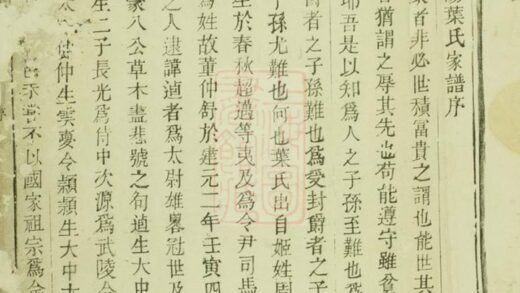 陽葉氏家譜序
族者非必世積富貴之謂也能世其
猶謂之辱其先也苟能遵守雖貧
耶吾是以知爲人之子孫至難也爲
爵者之子孫難也爲受封爵者之子
子孫尤難也何也葉氏出自姬姓周
生於春秋超邁等夷及爲令尹司馬
爲姓故董仲舒於建元二年壬寅四
之人逮諱逌者爲太尉雄畧冠世及
家八公草木盡悲號之句逌生大中
生二子長光爲侍中次源爲武陵令
仲生雲夢令顥顥生大中大
不以國家祖宗爲念